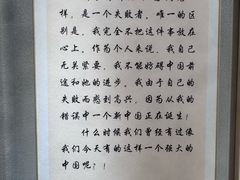 样，是一个失败者，唯一的区
别是，我完全不把这件事放在
心上，作为个人来说，我自己
无关紧要，我不能妨碍中国前
途和她的进步，我由于自己的
失败而感到高兴，因为从我的
错误中一个新中国正在诞生！
什么时候我们曾经有过像
我们今天有的这样一个强大的
中国呢？！